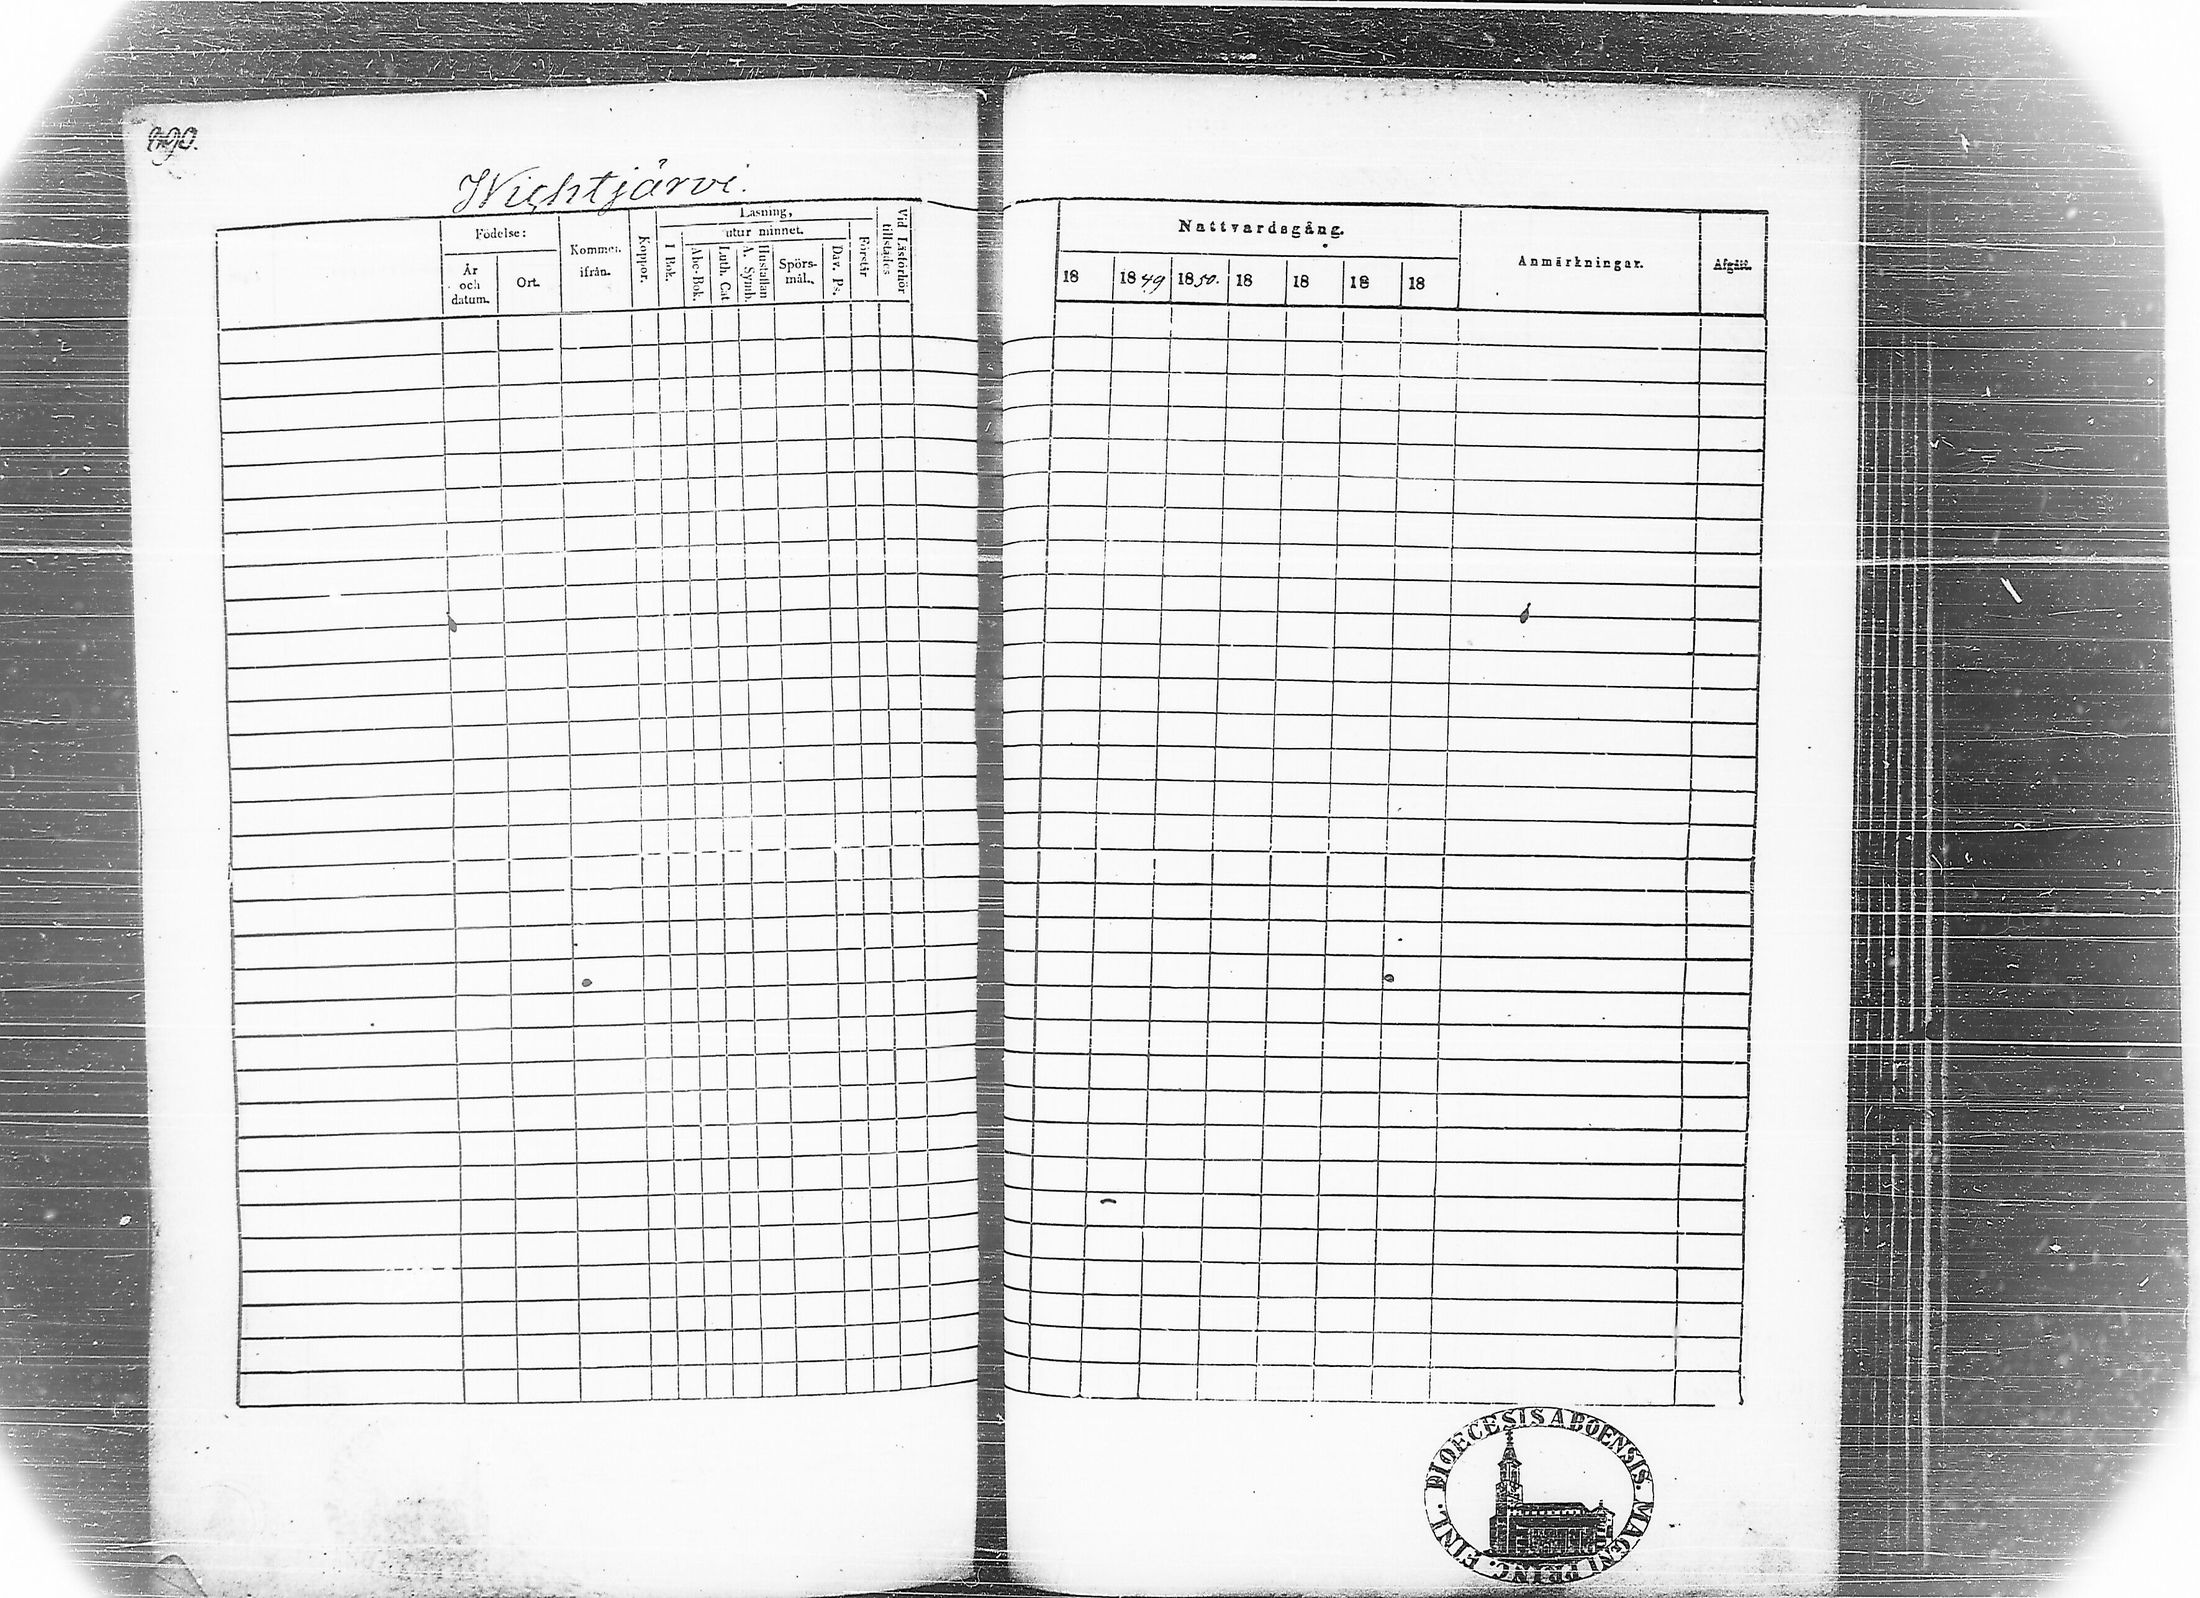 Wichtjärvi.
Födelse:
År
och
datum.
Ort.
Kommen
ifrån.
Koppor.
Läsning,
utur minnet.
I Bok.
Abc-Bok.
Luth. Cat
Hustaflan
A. Symb.
Spörs-
mål.
Dav. Ps.
Förstår
Vid Läsförhör
tillstädes
Nattvardsgång.
18
18 49
18 50.
18
18
18
18
Anmärkningar.
Afgått.
DIOECESIS ABOENSIS. MAGNI PRINC. FINL.